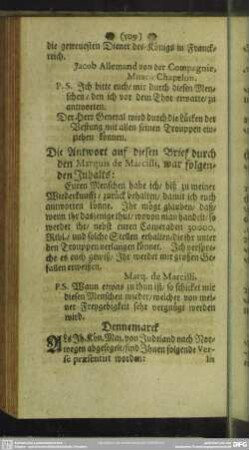 (109)
die getreuesten Diener des Königs in Franck-
reich.
Jacob Allemand von der Compagnie,
Chapelon.
P. S. Ich bitte euch/ mir durch diesen Men-
schen/ den ich vor dem Thor erwarte/ zu
antworten.
Der Herr General wird durch die Lücken der
Vestung mit allen seinen Trouppen ein-
ziehen können.
Die Antwort auf diesen Brief durch
den Marquis de Marcilli, war folgen-
den Inhalts:
Euren Menschen habe ich/ biß zu meiner
Wiederkunfft/ zurück behalten/ damit ich euch
antworten könte. Ihr mögt glauben/ daß/
wenn ihr dasjenige thut/ wovon man handelt/ so
werdet ihr/ nebst euren Cameraden 30000.
und solche Stellen erhalten/ die ihr unter
den Trouppen verlangen könnet. Ich verspre-
che es euch gewiß/ Ihr werdet mir großen Ge-
fallen erweisen.
Marq. de Marcilli.
P.S. Wann etwas zu thun ist/ so schicket mir
diesen Menschen wieder/ welcher von mei-
ner Freygebigkeit sehr vergnügt werden
wird.
Dennemarck
ALs Ih. Kön. Maj. von Judtland nach Nor-
wegen abgesegelt/ sind Ihnen folgende Ver-
se præsentirt worden: